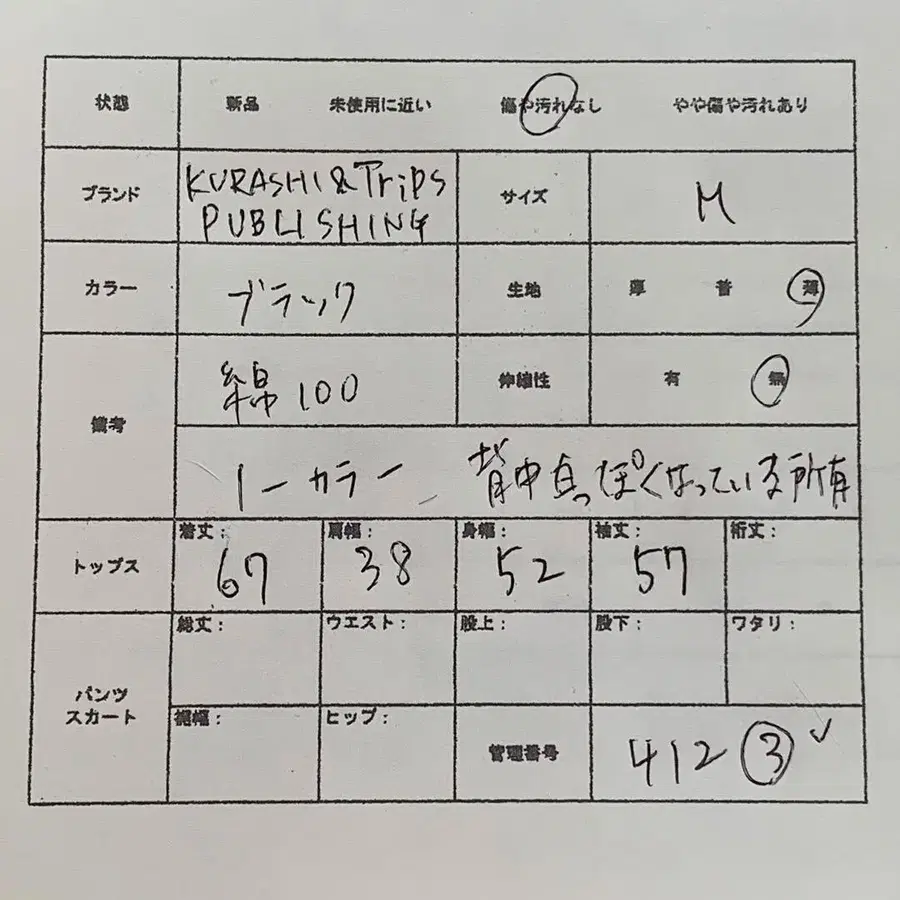 状態 新品 未使用に近い 傷や汚れなし やや傷や汚れあり
ブランド KURASHI & Trips PUBLISHING サイズ M
カラー ブラック 生地 厚 普 薄
備考 綿 100 伸縮性 有 無
ノーカラー、背中 っぽくなっている所有
トップス 着丈: 67 肩幅: 38 身幅: 52 袖丈: 57 裄丈:
パンツ スカート 総丈: ウエスト: 股上: 股下: ワタリ:
裾幅: ヒップ: 管理番号 412 ③